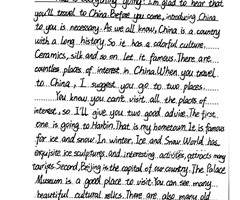 How is everything going? I'm glad to hear that
you'll travel to China. Before you come, introducing China
to you is necessary. As we all know, China is a country
with a long history. So it has a colorful culture.
Ceramics, silk and so on let it famous. There are
countless places of interest in China. When you travel
to China, I suggest you go to two places.
You know you can't visit all the places of
interest, so I'll give you two good advice. The first
one is going to Harbin. That is my hometown. It is famous
for ice and snow. In winter, Ice and Snow World has
exquisite ice sculptures. And interesting activities, attracts many
tourists. Second, Beijing is the capital of our country. The Palace
Museum is a good place to visit. You can see many
beautiful cultural relics. There are also many old